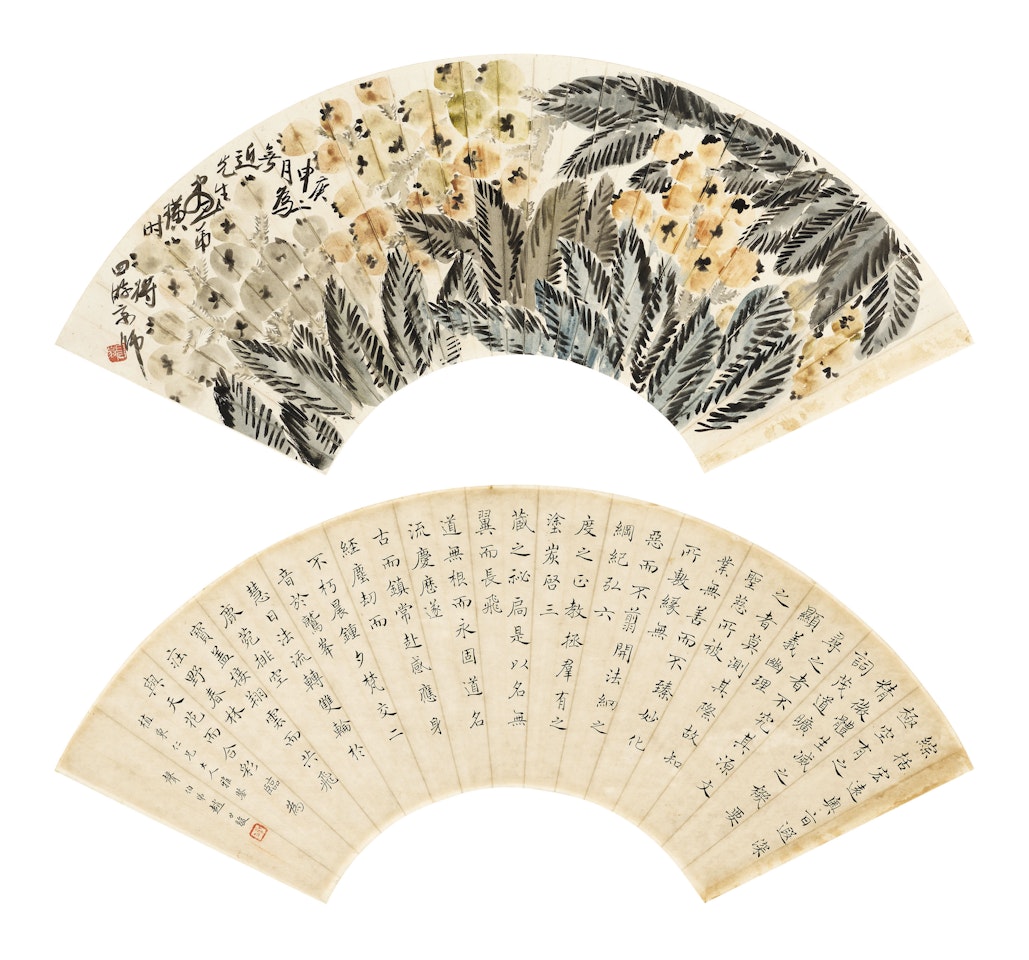 庚申
月為
先生
綜括宏遠奧旨遐深
極空有之
精微體生滅之機要
詞茂道曠
尋之者不究其源文
顯義幽理
之者莫測其際故知
聖慈所被
業無善而不臻妙化
所敷緣無
惡而不翦開法網之
綱紀弘六
度之正教拯羣有之
塗炭啓三
藏之祕扃是以名無
翼而長飛
道無根而永固道名
流慶歷遂
古而鎮常赴感應身
經塵劫而
不朽晨鍾夕梵交二
音於鷲峯
慧日法流轉雙輪於
鹿苑排空
寶蓋接翔雲而共飛
莊野春林
與天花而合彩臨為
仁兄大人雅鑒